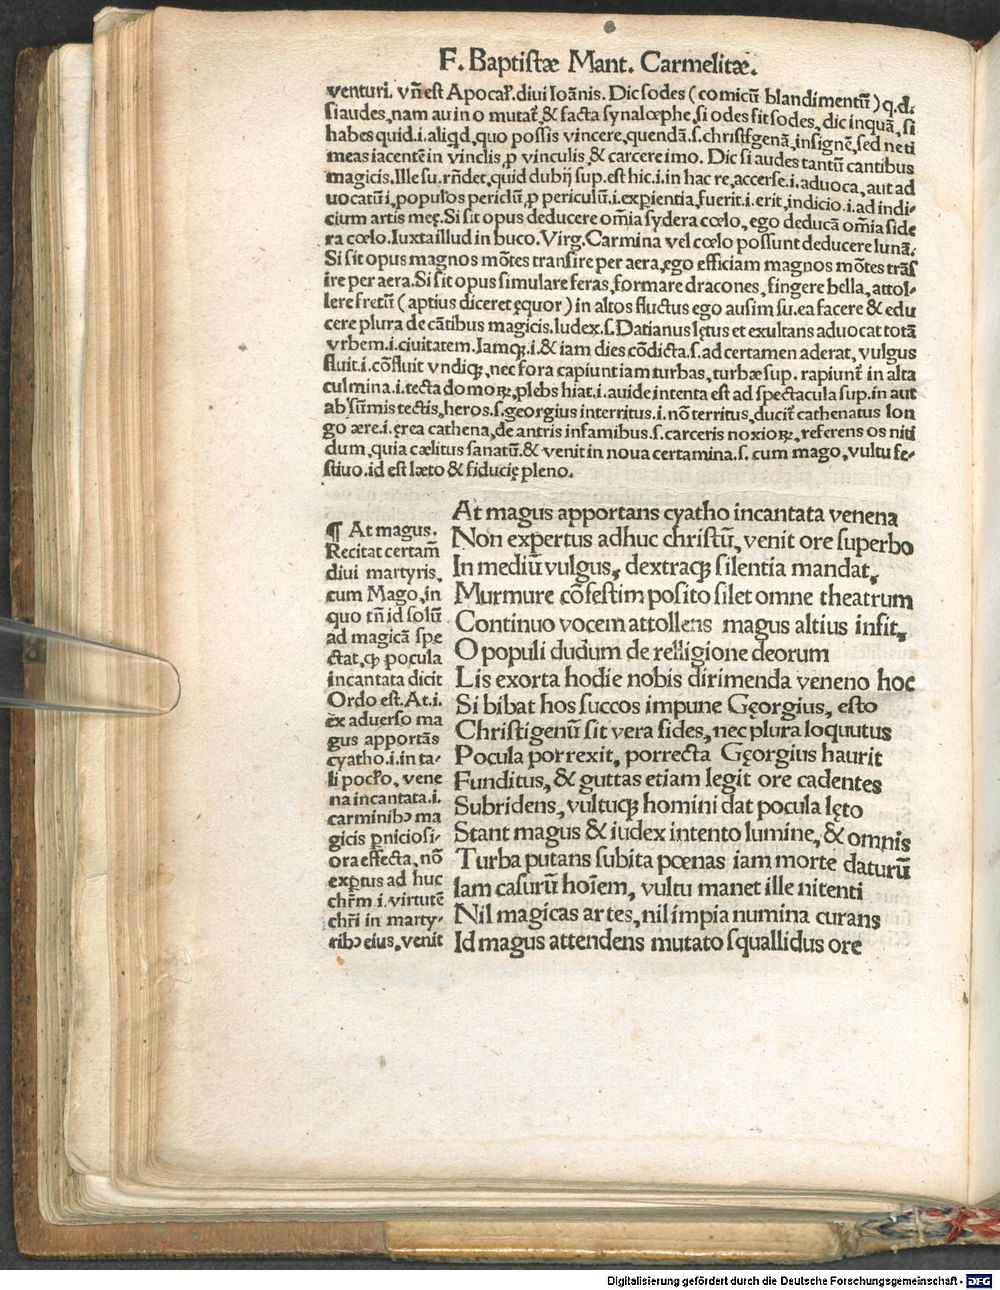 F. Baptistæ Mant. Carmelitæ.
venturi. vñ est Apocał. diui Ioãnis. Dic sodes (comicũ blandimentũ) q.d.
si audes, nam au in o mutat̃ & facta synalœphe, si odes fit sodes, dic inquã, si
habes quid .i. aliqd, quo possis vincere, quendã .s. christĩgenã, insignẽ, sed neti
meas iacentẽ in vinclis, p vinculis, & carcere imo. Dic si audes tantũ cantibus
magicis. Ille su. rñdet, quid dubij sup. est hic .i. in hac re, accerse .i. aduoca, aut ad
uocatũ i, populos periclũ, p periculũ .i. expientia, fuerit .i. erit, indicio .i. ad indi-
cium artis meę. Si sit opus deducere om̃ia sydera cœlo, ego deducã om̃ia side
ra cœlo. Iuxta illud in buco. Virg. Carmina vel cœlo possunt deducere lunã.
Si sit opus magnos mõtes transire per aera, ego efficiam magnos mõtes trãs
ire per aera. Si sit opus simulare feras, formare dracones, fingere bella, attol-
lere fretũ (aptius diceret ęquor) in altos fluctus ego ausim su. ea facere & edu
cere plura de cãtibus magicis. Iudex .s. Datianus lętus et exultans aduocat totã
vrbem .i. ciuitatem. Iamqꝫ .i. & iam dies cõdicta .s. ad certamen aderat, vulgus
fluit .i. cõfluit vndiqꝫ, nec fora capiunt iam turbas, turbæ sup. rapiunt̃ in alta
culmina .i. tecta domoꝝ, plebs hiat .i. auide intenta est ad spectacula sup. in aut
ab sũmis tectis, heros .s. georgius interritus .i. nõ territus, ducit̃ cathenatus lon
go ære .i. ęrea cathena, de antris infamibus .s. carceris noxioꝝ, referens os niti
dum, quia cælitus sanatũ. & venit in noua certamina .s. cum mago, vultu fe-
stiuo. id est læto & fiducię pleno.
¶ At magus.
Recitat certam̃
diui martyris,
cum Mago, in
quo tñ id solũ
ad magicã spe
ctat, qꝫ pocula
incantata dicit
Ordo est. At .i.
ex aduerso ma
gus apportãs
cyatho .i. in ta-
li pocło, vene
na incantata .i.
carminibꝰ ma
gicis pniciosi-
ora effecta, nõ
exptus ad huc
chr̃m i. virtutẽ
chr̃i in marty-
ribꝰ eius, venit
At magus apportans cyatho incantata venena
Non expertus adhuc christũ, venit ore superbo
In mediũ vulgus, dextraqꝫ silentia mandat.
Murmure cõfestim posito silet omne theatrum
Continuo vocem attollens magus altius infit.
O populi dudum de relligione deorum
Lis exorta hodie nobis dirimenda veneno hoc
Si bibat hos succos impune Gęorgius, esto
Christigenũ sit vera fides, nec plura loquutus
Pocula porrexit, porrecta Gęorgius haurit
Funditus, & guttas etiam legit ore cadentes
Subridens, vultuqꝫ homini dat pocula lęto
Stant magus & iudex intento lumine, & omnis
Turba putans subita pœnas iam morte daturũ
Iam casurũ hoĩem, vultu manet ille nitenti
Nil magicas artes, nil impia numina curans
Id magus attendens mutato squallidus ore
Digitalisierung gefördert durch die Deutsche Forschungsgemeinschaft - DFG